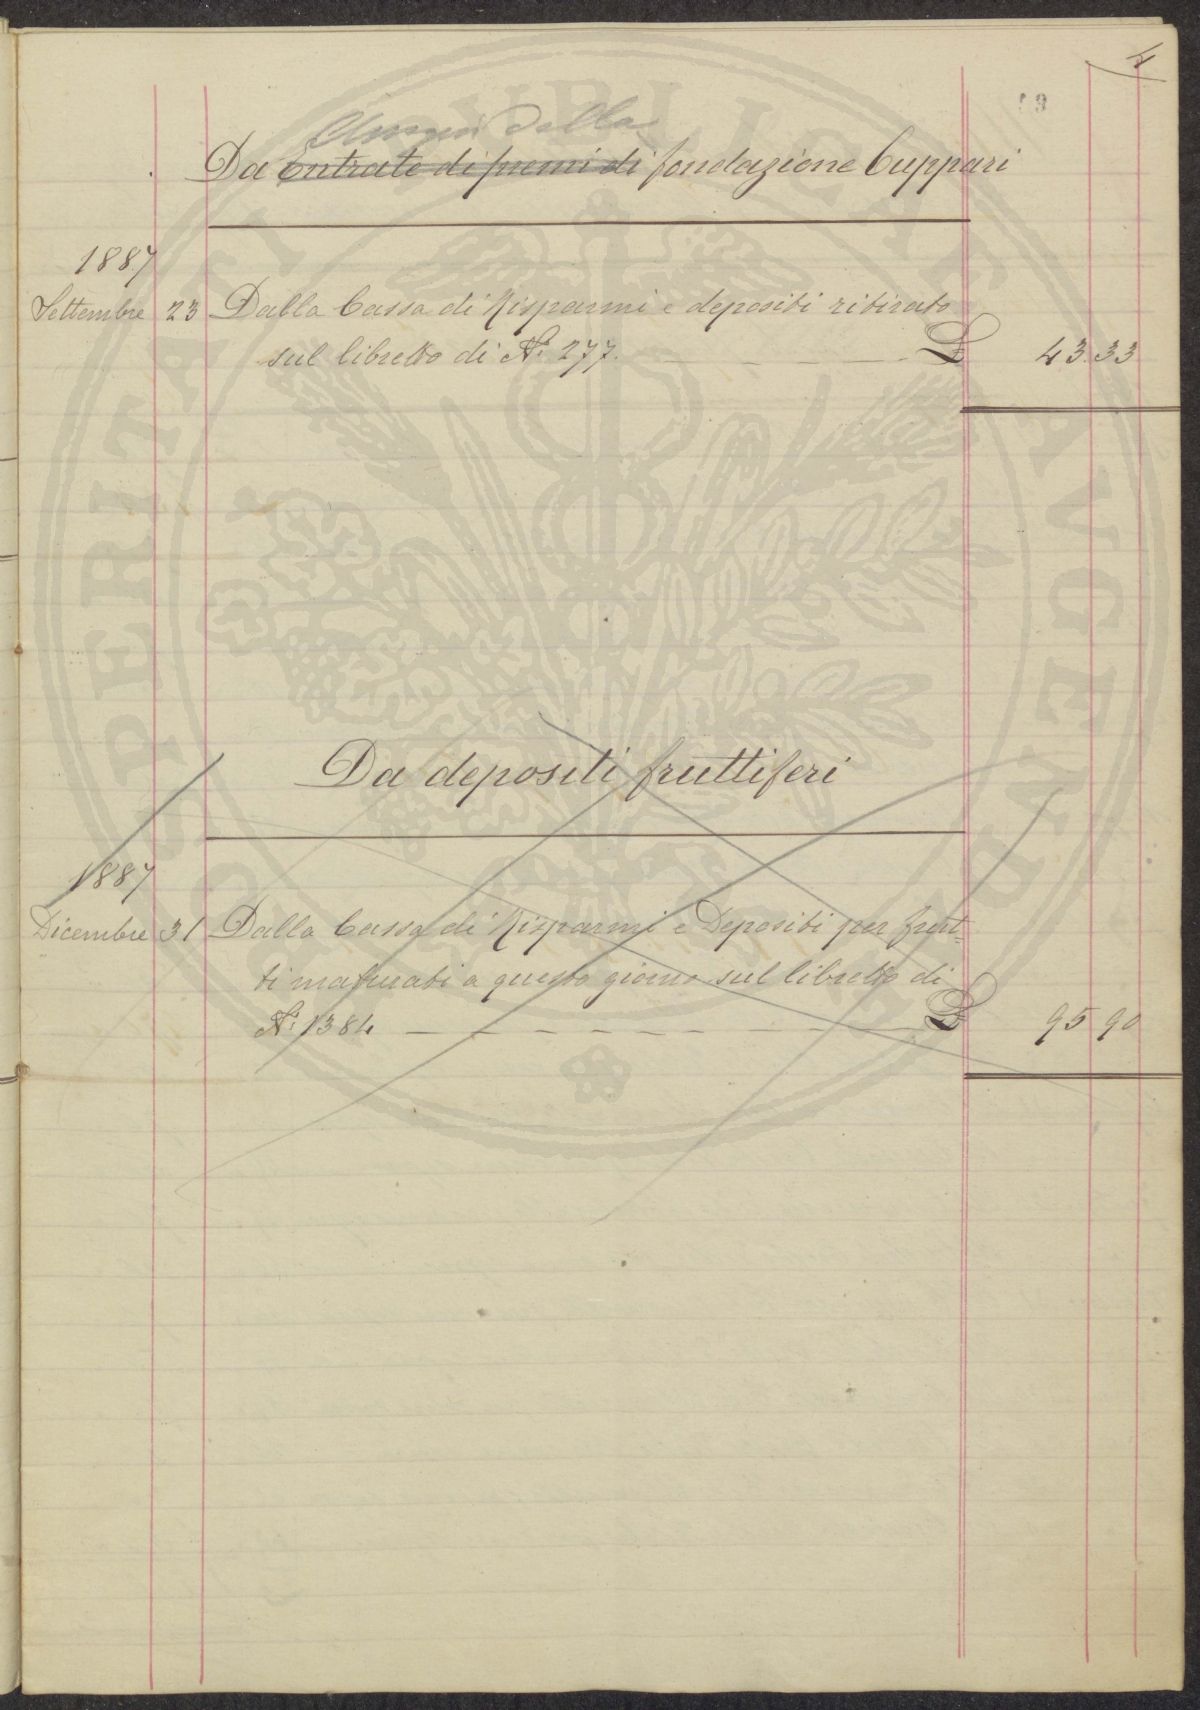 4
dalla
Da entrate di premi di fondazione Cuppari
1887
Settembre 23 Dalla Cassa di Risparmi e depositi ritirato
sul libretto di N.º 277. £ 43.33
Da depositi fruttiferi
1887
Dicembre 31 Dalla Cassa di Risparmi e Depositi per frut-
ti maturati a questo giorno sul libretto di
N.º 1384 £ 95 90